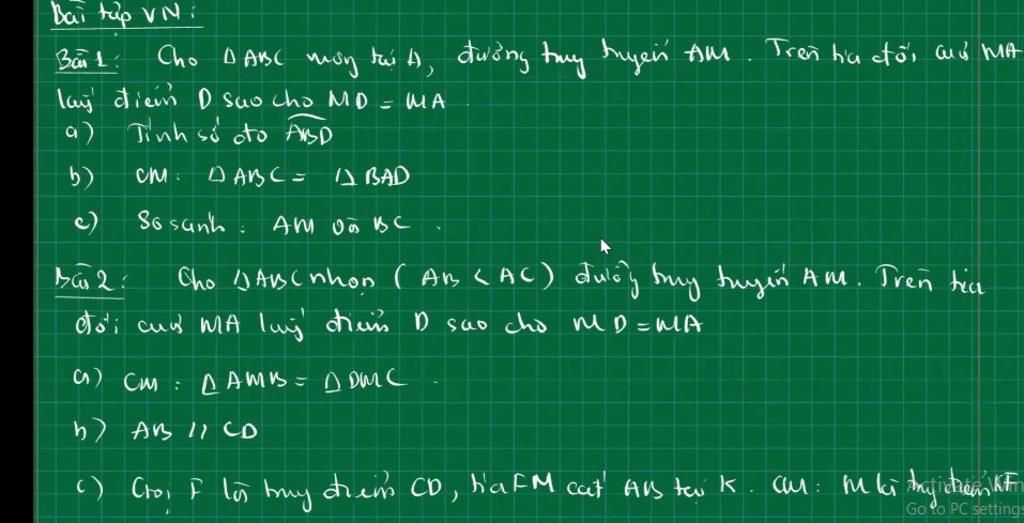 Bài tập VN:
Bài 1: Cho Δ ABC vuông tại A, đường trung tuyến AM. Trên tia đối của MA
lấy điểm D sao cho MD = MA
a) Tính số đo ABD
b) CM: Δ ABC = Δ BAD
c) So sánh: AM và BC.
Bài 2: Cho Δ ABC nhọn (AB < AC) đường trung tuyến AM. Trên tia
đối của MA lấy điểm D sao cho MD = MA
a) CM: Δ AMB = Δ DMC.
b) AB // CD
c) Gọi F là trung điểm CD, tia FM cắt AB tại K. CM: M là trung điểm KF
Activate Win
Go to PC settings